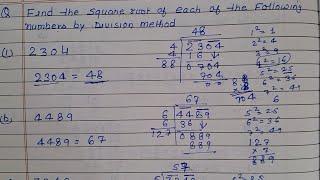 Q Find the square root of each of the following
numbers by Division method
(i) 2304
2304 = 48
48
4 2304
4 16 ↓
88 0704
704
1²=1
2²=4
3²=9
4²=16
5²=25
6²=36
7²=49
704
(b) 4489
4489 = 67
67
6 4489
6 36 ↓
127 0889
889
5²=25
6²=36
7²=49
127
× 7
889
57